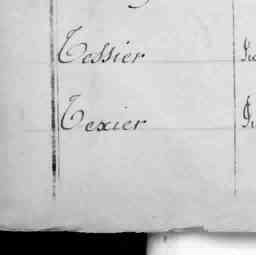 Tessier
Texier